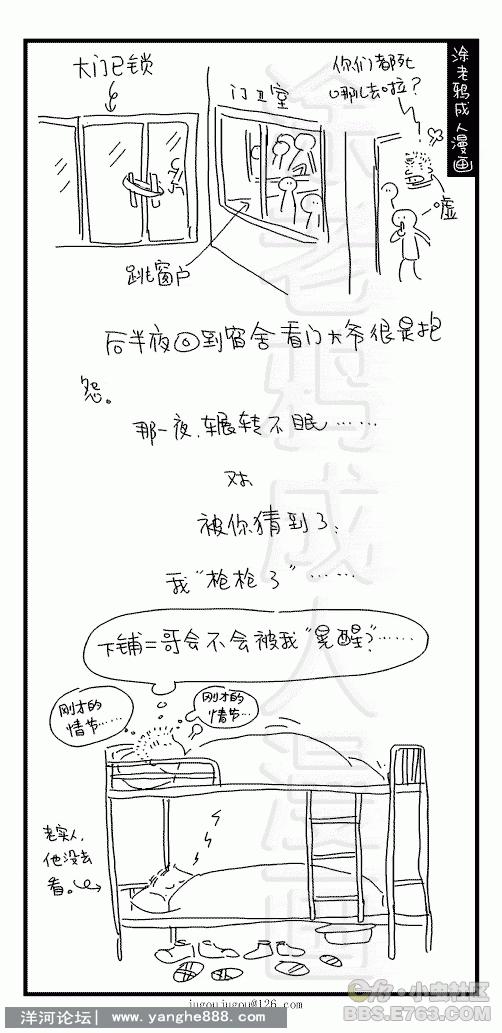 涂老鸦成人漫画
大门已锁
门卫室
你们都死
哪儿去啦？
嘘
跳窗户
后半夜回到宿舍看门大爷很是抱
怨。
那一夜，辗转不眠……
对，
被你猜到了，
我“枪枪了”……
下铺二哥会不会被我“晃醒？”……
刚才的
情节……
刚才的
情节……
老实人，
他没去
看。
涂老鸦成人漫画
jugoujugou@126.com
小虫社区
BBS.E763.COM
洋河论坛| www.yanghe888.com